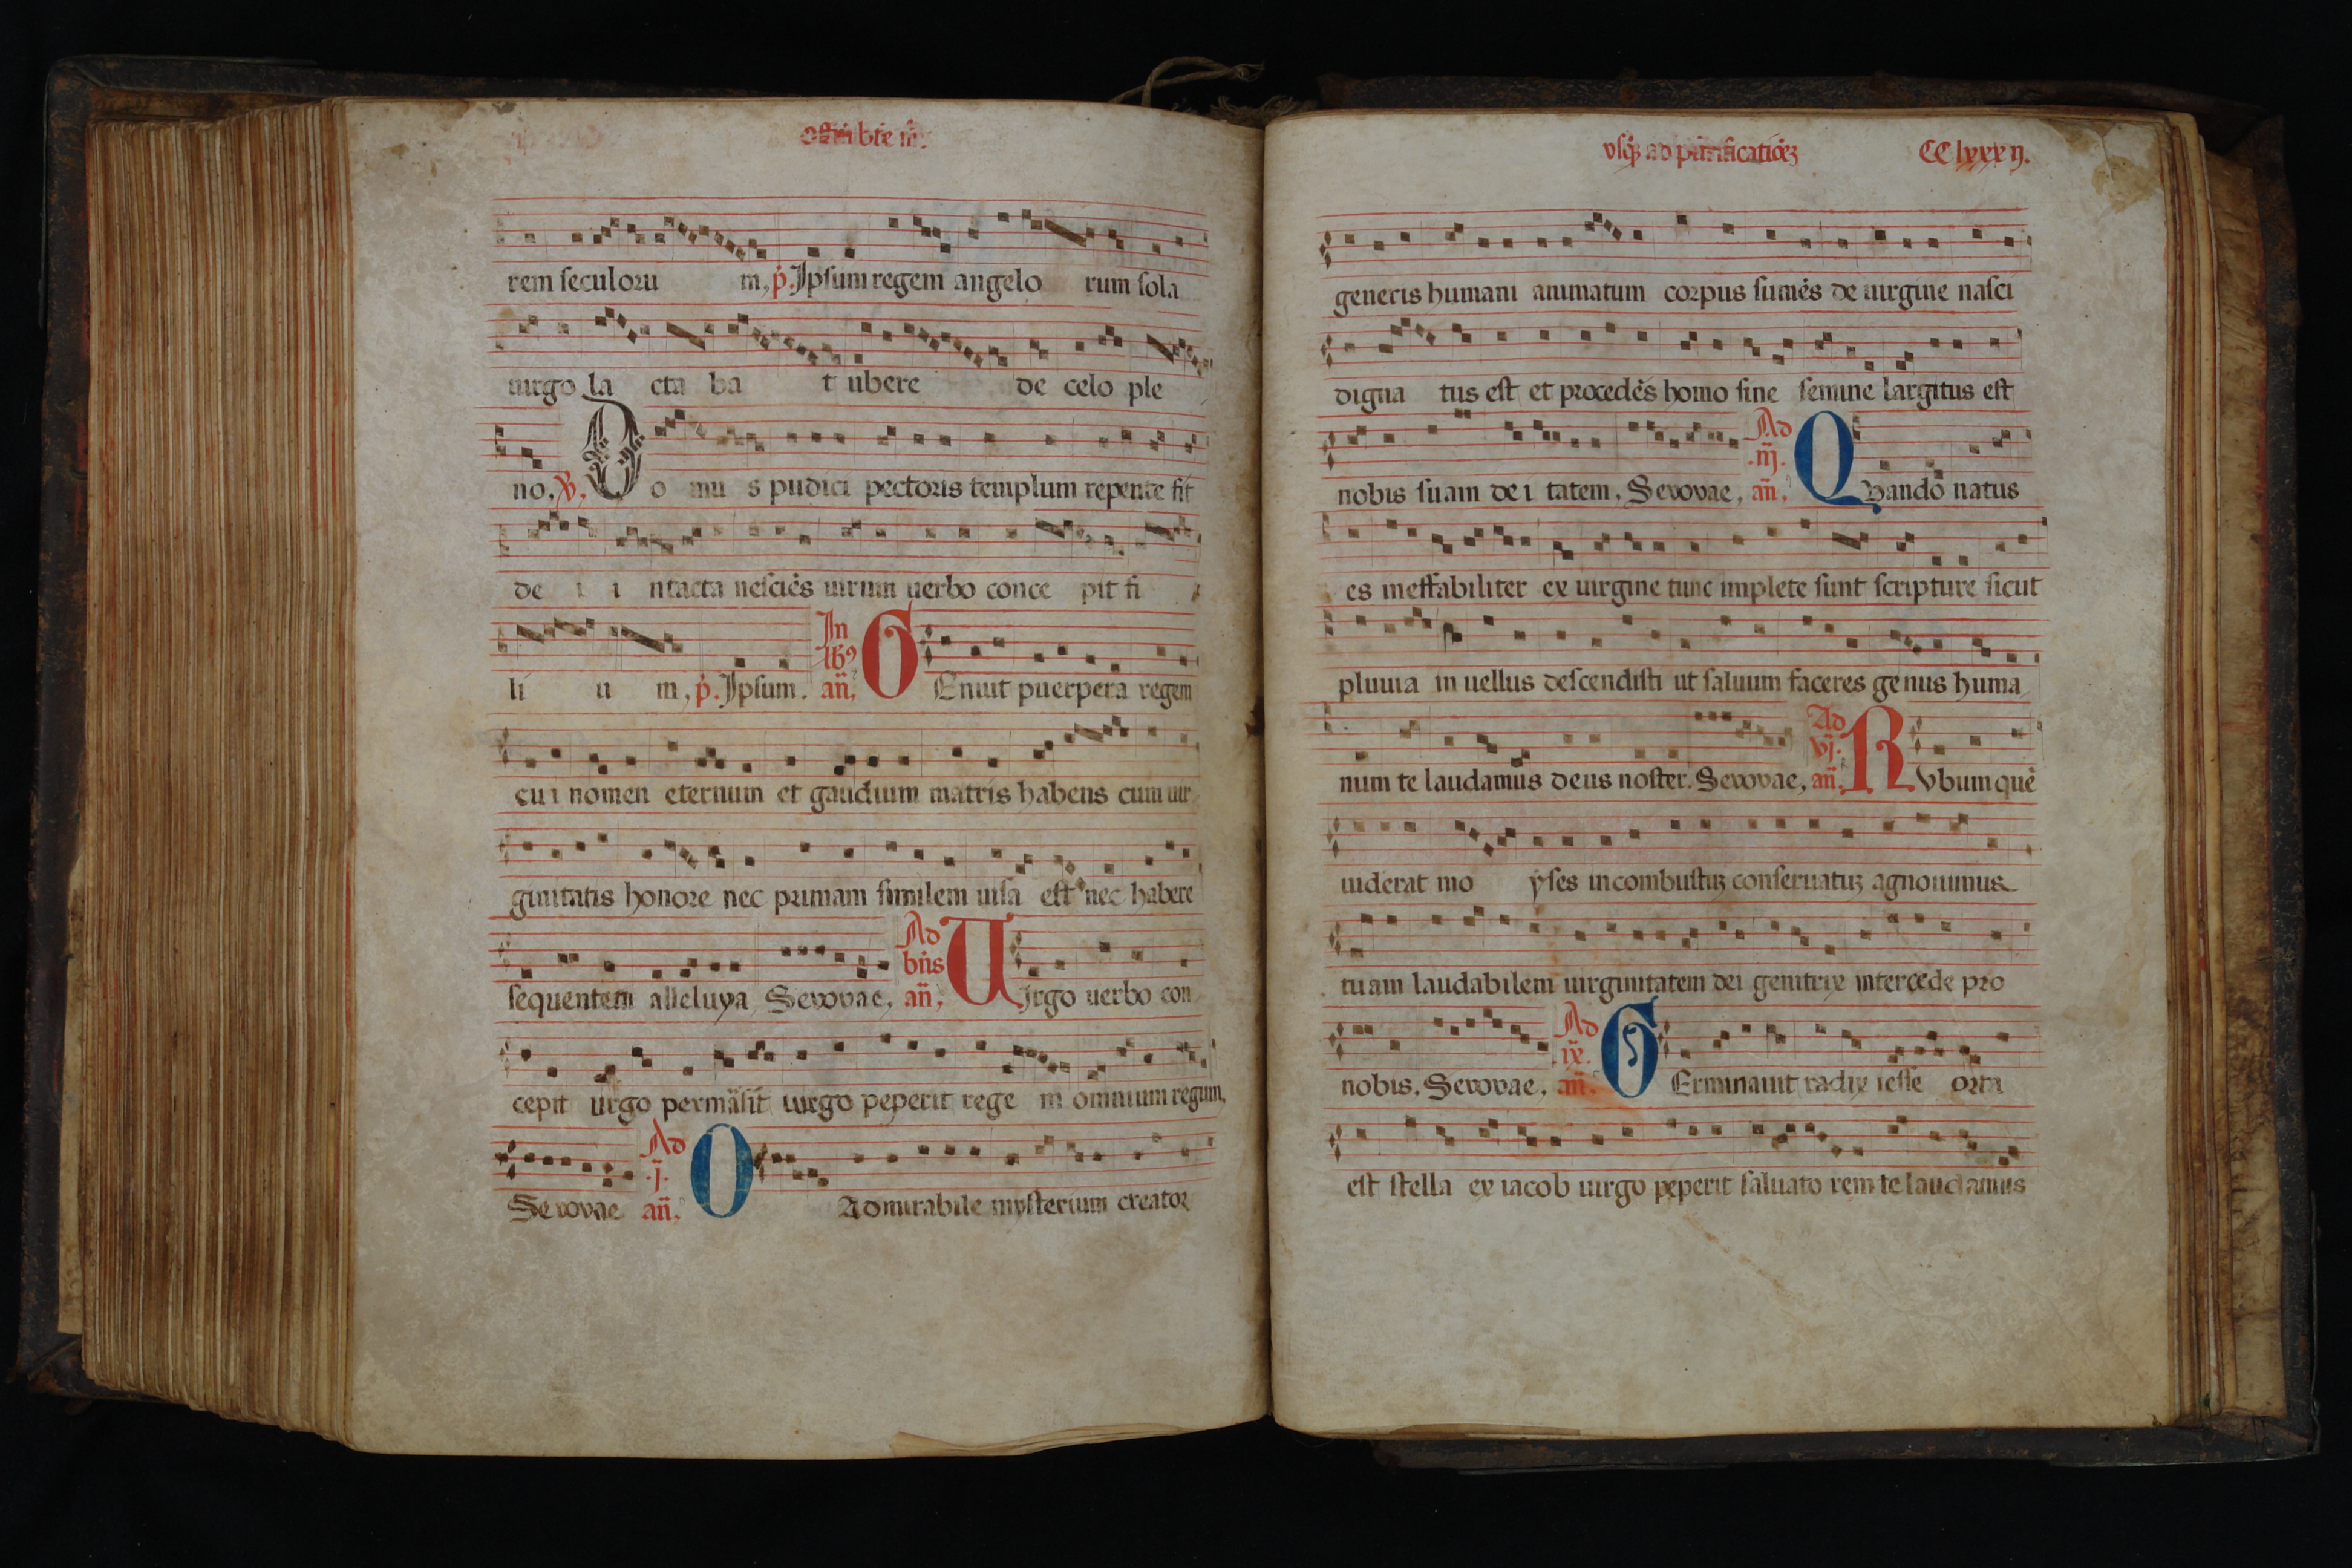 offm bte m.
rem seculoru m, p. Ipsum regem angelo rum sola
uirgo la cta ba t ubere de celo ple
no, V, Do mu s pudici pectoris templum repente fit
de i i ntacta nesciēs uirum uerbo conce pit fi
li u m, p. Ipsum. In lb9 añ, GEnuit puerpera regem
cui nomen eternum et gaudium matris habens cum uir
ginitatis honore nec primam similem uisa est nec habere
sequentem alleluya Seuouae, Ad bñs añ, Uirgo uerbo con
cepit uirgo permāsit uirgo peperit rege m omnium regum,
Seuouae Ad .j. añ, O Admirabile mysterium creator
vsq3 ad purificatiōe3 CClxxxij.
generis humani animatum corpus sumēs de uirgine nasci
digna tus est et procedēs homo sine semine largitus est
nobis suam dei tatem, Seuouae, Ad .iij. añ, Quando natus
es ineffabiliter ex uirgine tunc implete sunt scripture sicut
pluuia in uellus descendisti ut saluum faceres genus huma
num te laudamus deus noster. Seuouae, Ad vj. añ, RVbum quē
uiderat mo yses incombustu3 conseruatu3 agnouimus
tuam laudabilem uirginitatem dei genitrix intercede pro
nobis. Seuouae, Ad .ix. añ. GErminauit radix iesse orta
est stella ex iacob uirgo peperit saluato rem te laudamus